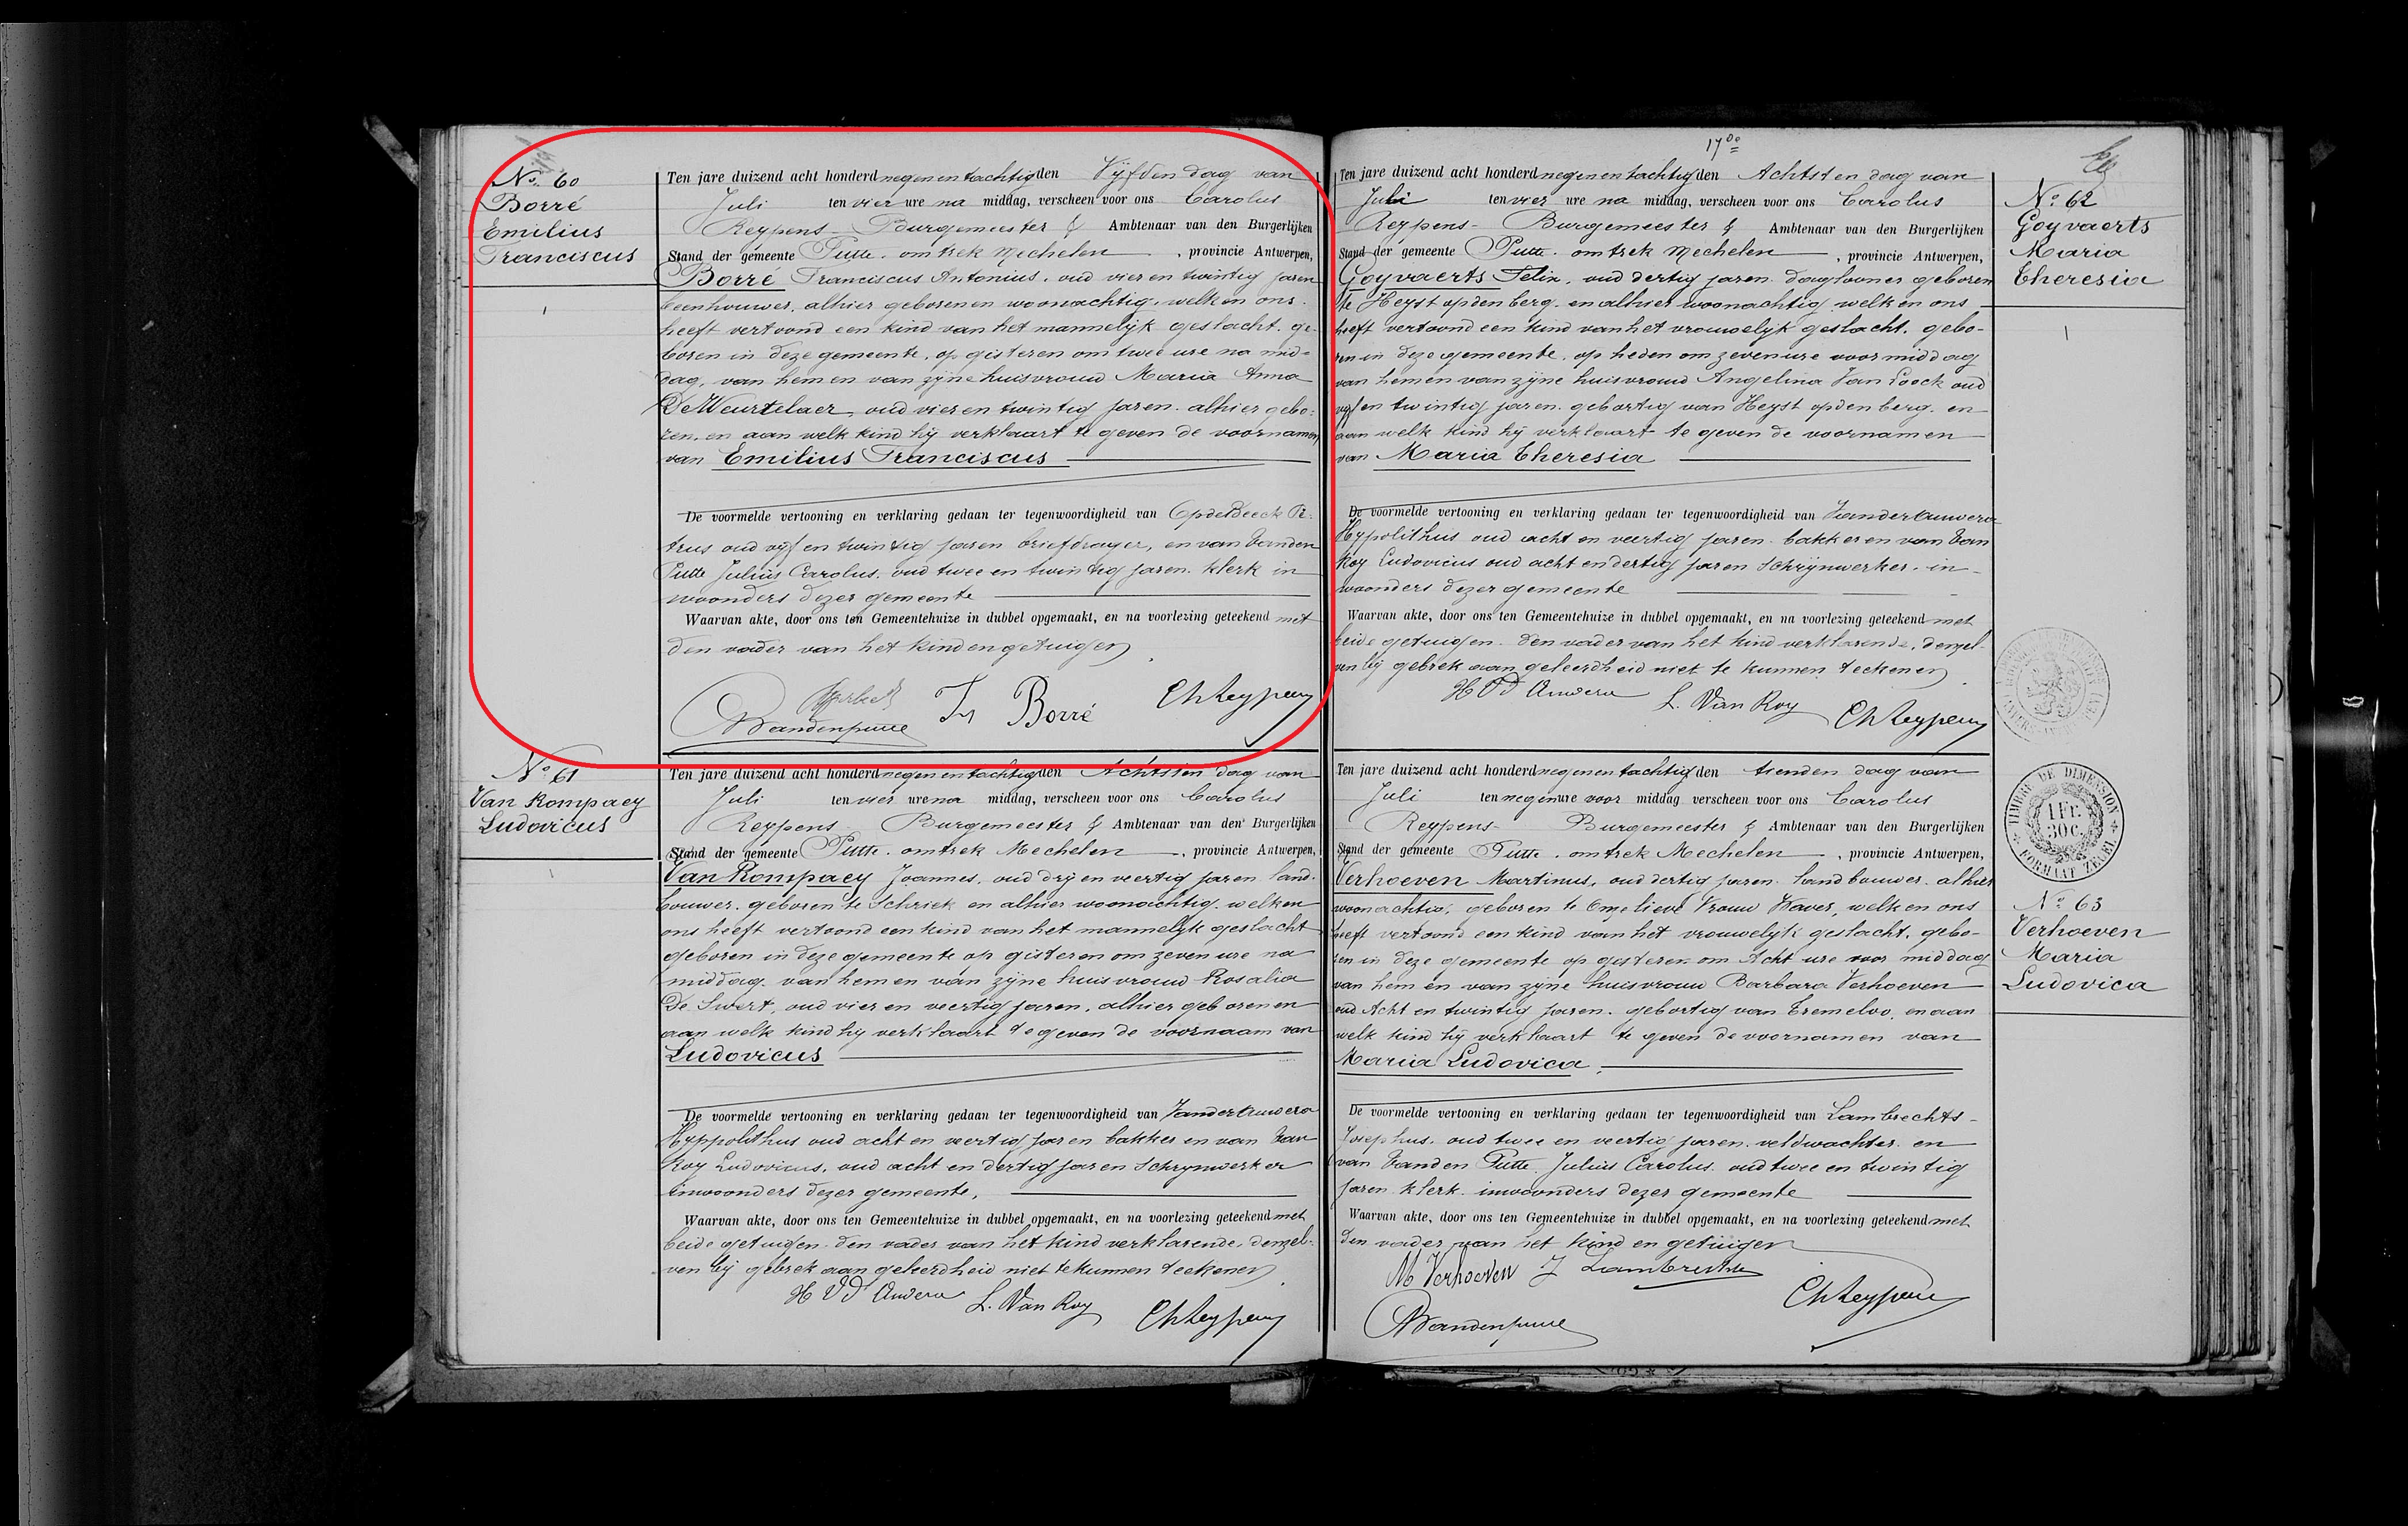 Nº 60
Borré
Emilius
Franciscus
Ten jare duizend acht honderd negen en tachtig den Vijfden dag van
Juli ten vier ure na middag, verscheen voor ons Carolus
Reypens - Burgemeester & Ambtenaar van den Burgerlijken
Stand der gemeente Putte. omtrek Mechelen, provincie Antwerpen,
Borré Franciscus Antonius. oud vier en twintig jaren
beenhouwer. alhier geboren en woonachtig. welken ons.
heeft vertoond een kind van het mannelijk geslacht. ge-
boren in deze gemeente. op gisteren om twee ure na mid-
dag, van hem en van zijne huisvrouw Maria Anna
De Weurtelaer, oud vier en twintig jaren. alhier gebo-
ren. en aan welk kind hij verklaart te geven de voornamen
van Emilius Franciscus
De voormelde vertooning en verklaring gedaan ter tegenwoordigheid van Op de Beeck Pe-
trus oud vijf en twintig jaren briefdrager, en van Vanden
Putte Julius Carolus. oud twee en twintig jaren. klerk in
woonders dezer gemeente
Waarvan akte, door ons ten Gemeentehuize in dubbel opgemaakt, en na voorlezing geteekend met
den vader van het kind en getuigen
Fr Borré
Ch Reypens
Vandenputte
Nº 61
Van Rompaey
Ludovicus
Ten jare duizend acht honderd negen en tachtig den Achtsten dag van
Juli ten vier ure na middag, verscheen voor ons Carolus
Reypens Burgemeester & Ambtenaar van den Burgerlijken
Stand der gemeente Putte. omtrek Mechelen, provincie Antwerpen,
Van Rompaey Joannes, oud drij en veertig jaren land-
bouwer. geboren te Schriek en alhier woonachtig. welken
ons heeft vertoond een kind van het mannelijk geslacht
geboren in deze gemeente op gisteren om zeven ure na
middag. van hem en van zijne huisvrouw Rosalia
De Swert, oud vier en veertig jaren, alhier geboren en
aan welk kind hij verklaart te geven de voornaam van
Ludovicus
De voormelde vertooning en verklaring gedaan ter tegenwoordigheid van Vanderauwera
Hyppolithus oud acht en veertig jaren bakker en van Van
Roy Ludovicus, oud acht en dertig jaren Schrijnwerker
inwoonders dezer gemeente,
Waarvan akte, door ons ten Gemeentehuize in dubbel opgemaakt, en na voorlezing geteekend met
beide getuigen. den vader van het kind verklarende, denzel-
ven bij gebrek aan geleerdheid niet te kunnen teekenen
H VD Auwera L. Van Roy Ch Reypens
17de
Ten jare duizend acht honderd negen en tachtig den Achtsten dag van
Juli ten vier ure na middag, verscheen voor ons Carolus
Reypens - Burgemeester & Ambtenaar van den Burgerlijken
Stand der gemeente Putte. omtrek Mechelen, provincie Antwerpen,
Goyvaerts Felix, oud dertig jaren. daglooner geboren
te Heyst op den berg. en alhier woonachtig welken ons
heeft vertoond een kind van het vrouwelijk geslacht. gebo-
ren in deze gemeente. op heden om zeven ure voor middag
van hem en van zijne huisvrouw Angelina Van Loock oud
vijf en twintig jaren. geboortig van Heyst op den berg. en
aan welk kind hij verklaart te geven de voornamen
van Maria Theresia
De voormelde vertooning en verklaring gedaan ter tegenwoordigheid van Vanderauwera
Hypolithus oud acht en veertig jaren. bakker en van Van
Roy Ludovicus oud acht en dertig jaren Schrijnwerker. in-
woonders dezer gemeente
Waarvan akte, door ons ten Gemeentehuize in dubbel opgemaakt, en na voorlezing geteekend met
beide getuigen. den vader van het kind verklarende, denzel-
ven bij gebrek aan geleerdheid niet te kunnen teekenen
H VD Auwera L. Van Roy Ch Reypens
Nº 62
Goyvaerts
Maria
Theresia
Ten jare duizend acht honderd negen en tachtig den tienden dag van
Juli ten negen ure voor middag verscheen voor ons Carolus
Reypens - Burgemeester & Ambtenaar van den Burgerlijken
Stand der gemeente Putte. omtrek Mechelen, provincie Antwerpen,
Verhoeven Martinus, oud dertig jaren. landbouwer. alhier
woonachtig, geboren te Onze lieve Vrouw Waver, welken ons
heeft vertoond een kind van het vrouwelijk geslacht, gebo-
ren in deze gemeente op gisteren om Acht ure voor middag
van hem en van zijne huisvrouw Barbara Verhoeven
oud Acht en twintig jaren. geboortig van Tremeloo, en aan
welk kind hij verklaart te geven de voornamen van
Maria Ludovica.
De voormelde vertooning en verklaring gedaan ter tegenwoordigheid van Lambrechts-
Josephus. oud twee en veertig jaren. veldwachter. en
van Vanden Putte. Julius Carolus. oud twee en twintig
jaren klerk. inwoonders dezer gemeente
Waarvan akte, door ons ten Gemeentehuize in dubbel opgemaakt, en na voorlezing geteekend met
den vader van het kind en getuigen
M Verhoeven J Lambrechts
Ch Reypens
Vandenputte
TIMBRE DE DIMENSION
1 Fr.
30c.
FORMAAT ZEGEL
Nº 63
Verhoeven
Maria
Ludovica